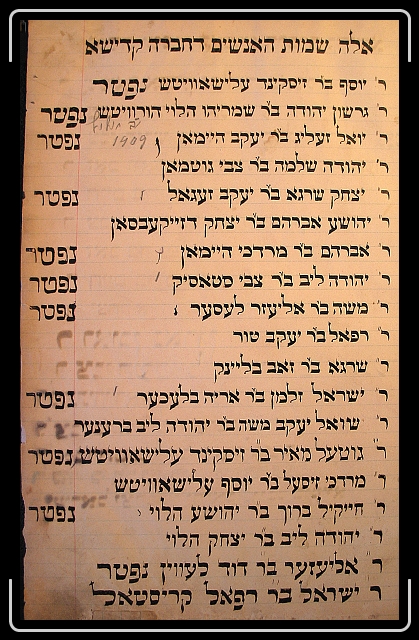 אלה שמות האנשים דחברה קדישא
ר' יוסף בר זיסקינד עלישאוויטש נפטר
ר' גרשון יהודה בר שמריהו הלוי הורוויטש נפטר
ר' יואל זעליג בר יעקב היימאן נפטר
1909
ר' יהודה שלמה בר צבי גוטמאן
ר' יצחק שרגא בר יעקב זעגאל נפטר
ר' יהושע אברהם בר יצחק דזייקעבסאן
ר' אברהם בר מרדכי היימאן נפטר
ר' יהודה ליב בר צבי סטאסיק נפטר
ר' משה בר אליעזר לעסער נפטר
ר' רפאל בר יעקב טור
ר' שרגא בר זאב בליינק
ר' ישראל זלמן בר אריה בלעכער נפטר
ר' שוואל יעקב משה בר יהודה ליב ברענער
ר' גוטעל מאיר בר זיסקינד עלישאוויטש נפטר
ר' מרדכי זיסעל בר יוסף עלישאוויטש
ר' חייקיל ברוך בר יהושע הלוי נפטר
ר' יהודה ליב בר יצחק הלוי
ר' אליעזער בר דוד לעווין נפטר
ר' ישראל בר רפאל קריסטאל